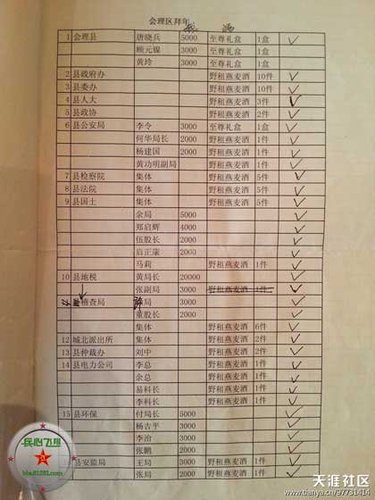 会理区拜年
1 会理县 唐晓兵 5000 至尊礼盒 1盒
顾元猱 3000 至尊礼盒 1盒
黄玲 3000 至尊礼盒 1盒
2 县政府办 野租燕麦酒 10件
3 县委办 野租燕麦酒 10件
4 县人大 野租燕麦酒 3件
5 县政协 野租燕麦酒 2件
6 县公安局 李令 3000 至尊礼盒 1盒
何华局长 5000 野租燕麦酒 1件
杨建国 2000 野租燕麦酒 1件
黄功明副局 3000 野租燕麦酒 1件
7 县检察院 集体 野租燕麦酒 5件
8 县法院 集体 野租燕麦酒 5件
9 县国土 集体 野租燕麦酒 5件
余局 5000
郑启辉 4000
伍股长 2000
启正康 2000
马莉 野租燕麦酒 1件
10 县地税 黄局长 20000
张副局 3000 野租燕麦酒 1件
稽查局 局 3000
董股长 2000
集体 野租燕麦酒 6件
12 城北派出所 集体 野租燕麦酒 2件
13 县仲裁办 刘中 野租燕麦酒 2件
14 县电力公司 李总 野租燕麦酒 1件
余总 野租燕麦酒 1件
易科长 野租燕麦酒 1件
李科长 野租燕麦酒 1件
15 县环保 付局长 5000
杨吉平 3000
李治 3000
张鹏 2000
县安监局 王局 3000 野租燕麦酒 1件
张局 2000 野租燕麦酒 1件
民心飞扬
天涯社区
www.tianya.cn/97731414